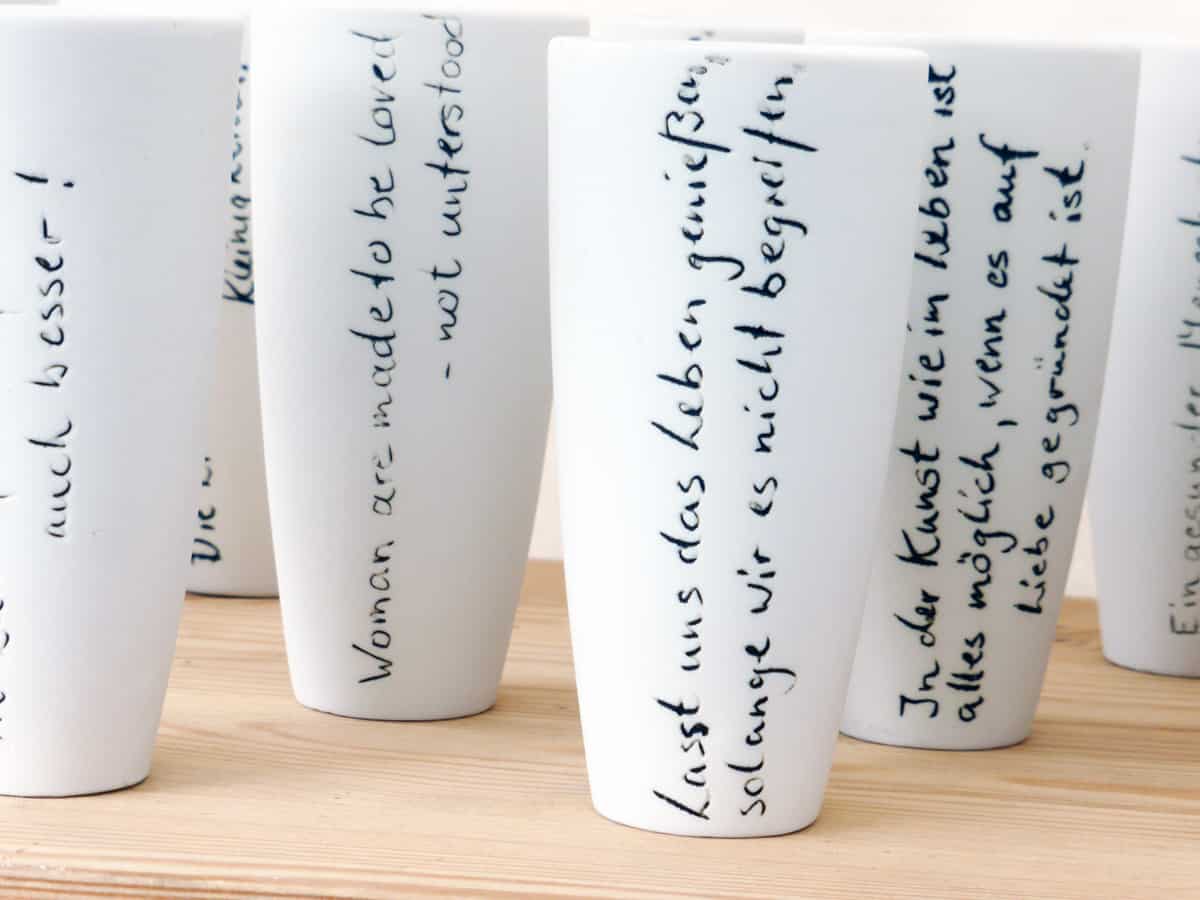 auch besser!
Die
Kleinig
Woman are made to be loved
- not unterstood
Lasst uns das Leben genießen,
solange wir es nicht begreifen.
In der Kunst wie im Leben ist
alles möglich, wenn es auf
Liebe gegründet ist.
Ein gesunder